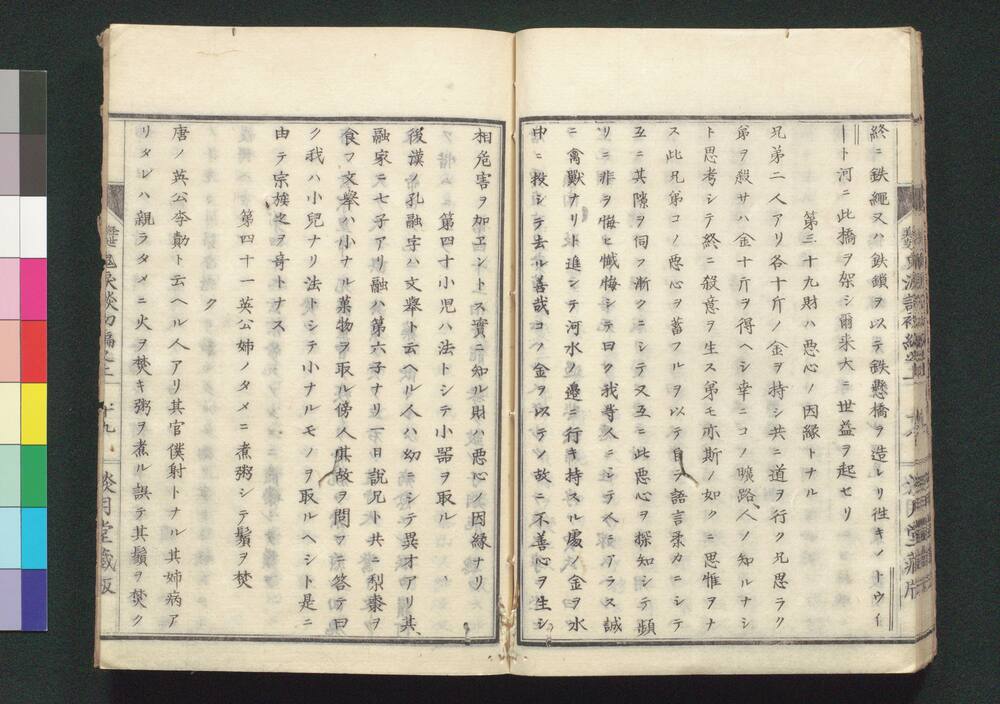 終ニ鉄繩又ハ鉄鎖ヲ以テ鉄懸橋ヲ造レリ徃キノトウイ
ート河ニ此橋ヲ架シ爾来大ニ世益ヲ起セリ
第三十九財ハ悪心ノ因縁トナル
兄弟二人アリ各十斤ノ金ヲ持シ共ニ道ヲ行ク兄思ラク
弟ヲ殺サハ金十斤ヲ得ヘシ幸ニコノ曠路人ノ知ルナシ
ト思考シテ終ニ殺意ヲ生ス弟モ亦斯ノ如ク思惟ヲナ
ス此兄弟コノ悪心ヲ蓄フルヲ以テ自ラ語言柔カニシテ
互ニ其隙ヲ伺フ漸クニシテ又互ニ此悪心ヲ探知シテ頻
リニ非ヲ悔ヒ懺悔シテ曰ク我等人ニシテ人ニアラス誠
ニ禽獣ナリト進ンテ河水ノ邉ニ行キ持スル處ノ金ヲ水
中ニ投シテ去ル善哉コノ金ヲ以テノ故ニ不善心ヲ生シ
相危害ヲ加エントス實ニ知ル財ハ悪心ノ因縁ナリ
第四十小児ハ法トシテ小器ヲ取ル
後漢ノ孔融字ハ文舉ト云ヘル人ハ幼ニシテ異才アリ其
融家ニ七子アリ融ハ第六子ナリ一日説兄ト共ニ梨棗ヲ
食フ文舉ハ小ナル菓物ヲ取ル傍人其故ヲ問フニ答テ曰
ク我ハ小兒ナリ法トシテ小ナルモノヲ取ルヘシト是ニ
由テ宗族之ヲ奇トナス
第四十一英公姉ノタメニ煮粥シテ鬚ヲ焚
ク
唐ノ英公李勣ト云ヘル人アリ其官僕射トナル其姉病ア
リタレハ親ラタメニ火ヲ焚キ粥ヲ煮ル誤テ其鬚ヲ焚ク
談月堂蔵版